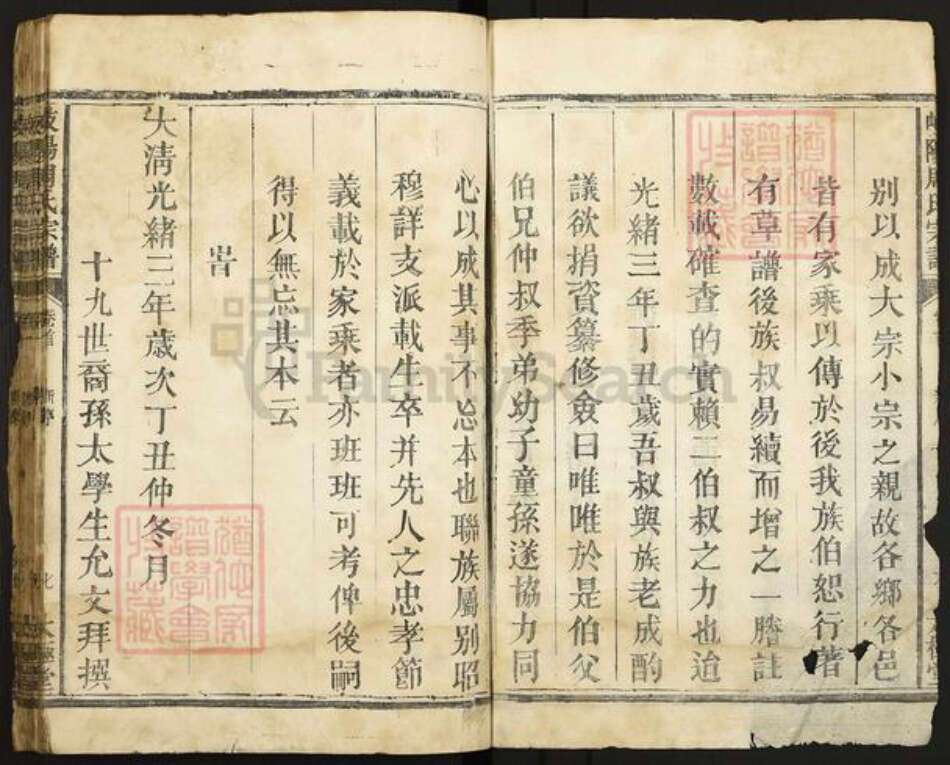 別以成大宗小宗之親故各鄉各邑
皆有家乘以傳於後我族伯恕行著
有草譜後族叔易續而增之一謄註
數載確查的實賴二伯叔之力也迨
光緒三年丁丑歲吾叔與族老成酌
議欲捐資纂修僉曰唯唯於是伯父
伯兄仲叔季弟幼子童孫遂協力同
心以成其事不忘本也聯族屬別昭
穆詳支派載生卒并先人之忠孝節
義載於家乘者亦班班可考俾後嗣
得以無忘其本云
旹
大清光緒三年歲次丁丑仲冬月
十九世裔孫太學生允文拜撰
岐陽周氏宗譜 卷首
FamilySearch